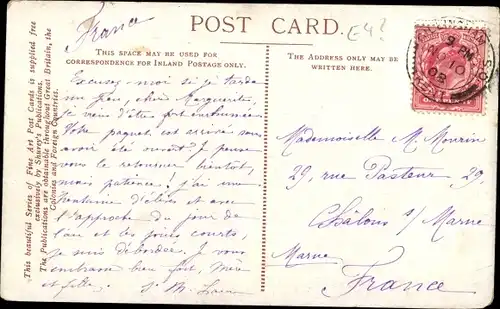 France
POST CARD.
E4?
THIS SPACE MAY BE USED FOR
CORRESPONDENCE FOR INLAND POSTAGE ONLY.
THE ADDRESS ONLY MAY BE
WRITTEN HERE.
This beautiful Series of Fine Art Post Cards is supplied free
exclusively by Shurey's Publications.
The Publications are obtainable throughout Great Britain, the
Colonies and Foreign Countries.
9 PM
10
08
Excusez moi si je tarde
un peu, chère Marguerite,
je viens d'être fort
Votre paquet est arrivé
avoir été ouvert. Je pense
vous le retourner bientôt,
mais patience! j'ai une
d'élèves et avec
l'approche du jour de
l'an et les jours courts,
je suis débordée. Je vous
embrasse bien fort, mère
et fille.
Mademoiselle M.
29, rue Pasteur 29,
Châlons s/ Marne
Marne
France